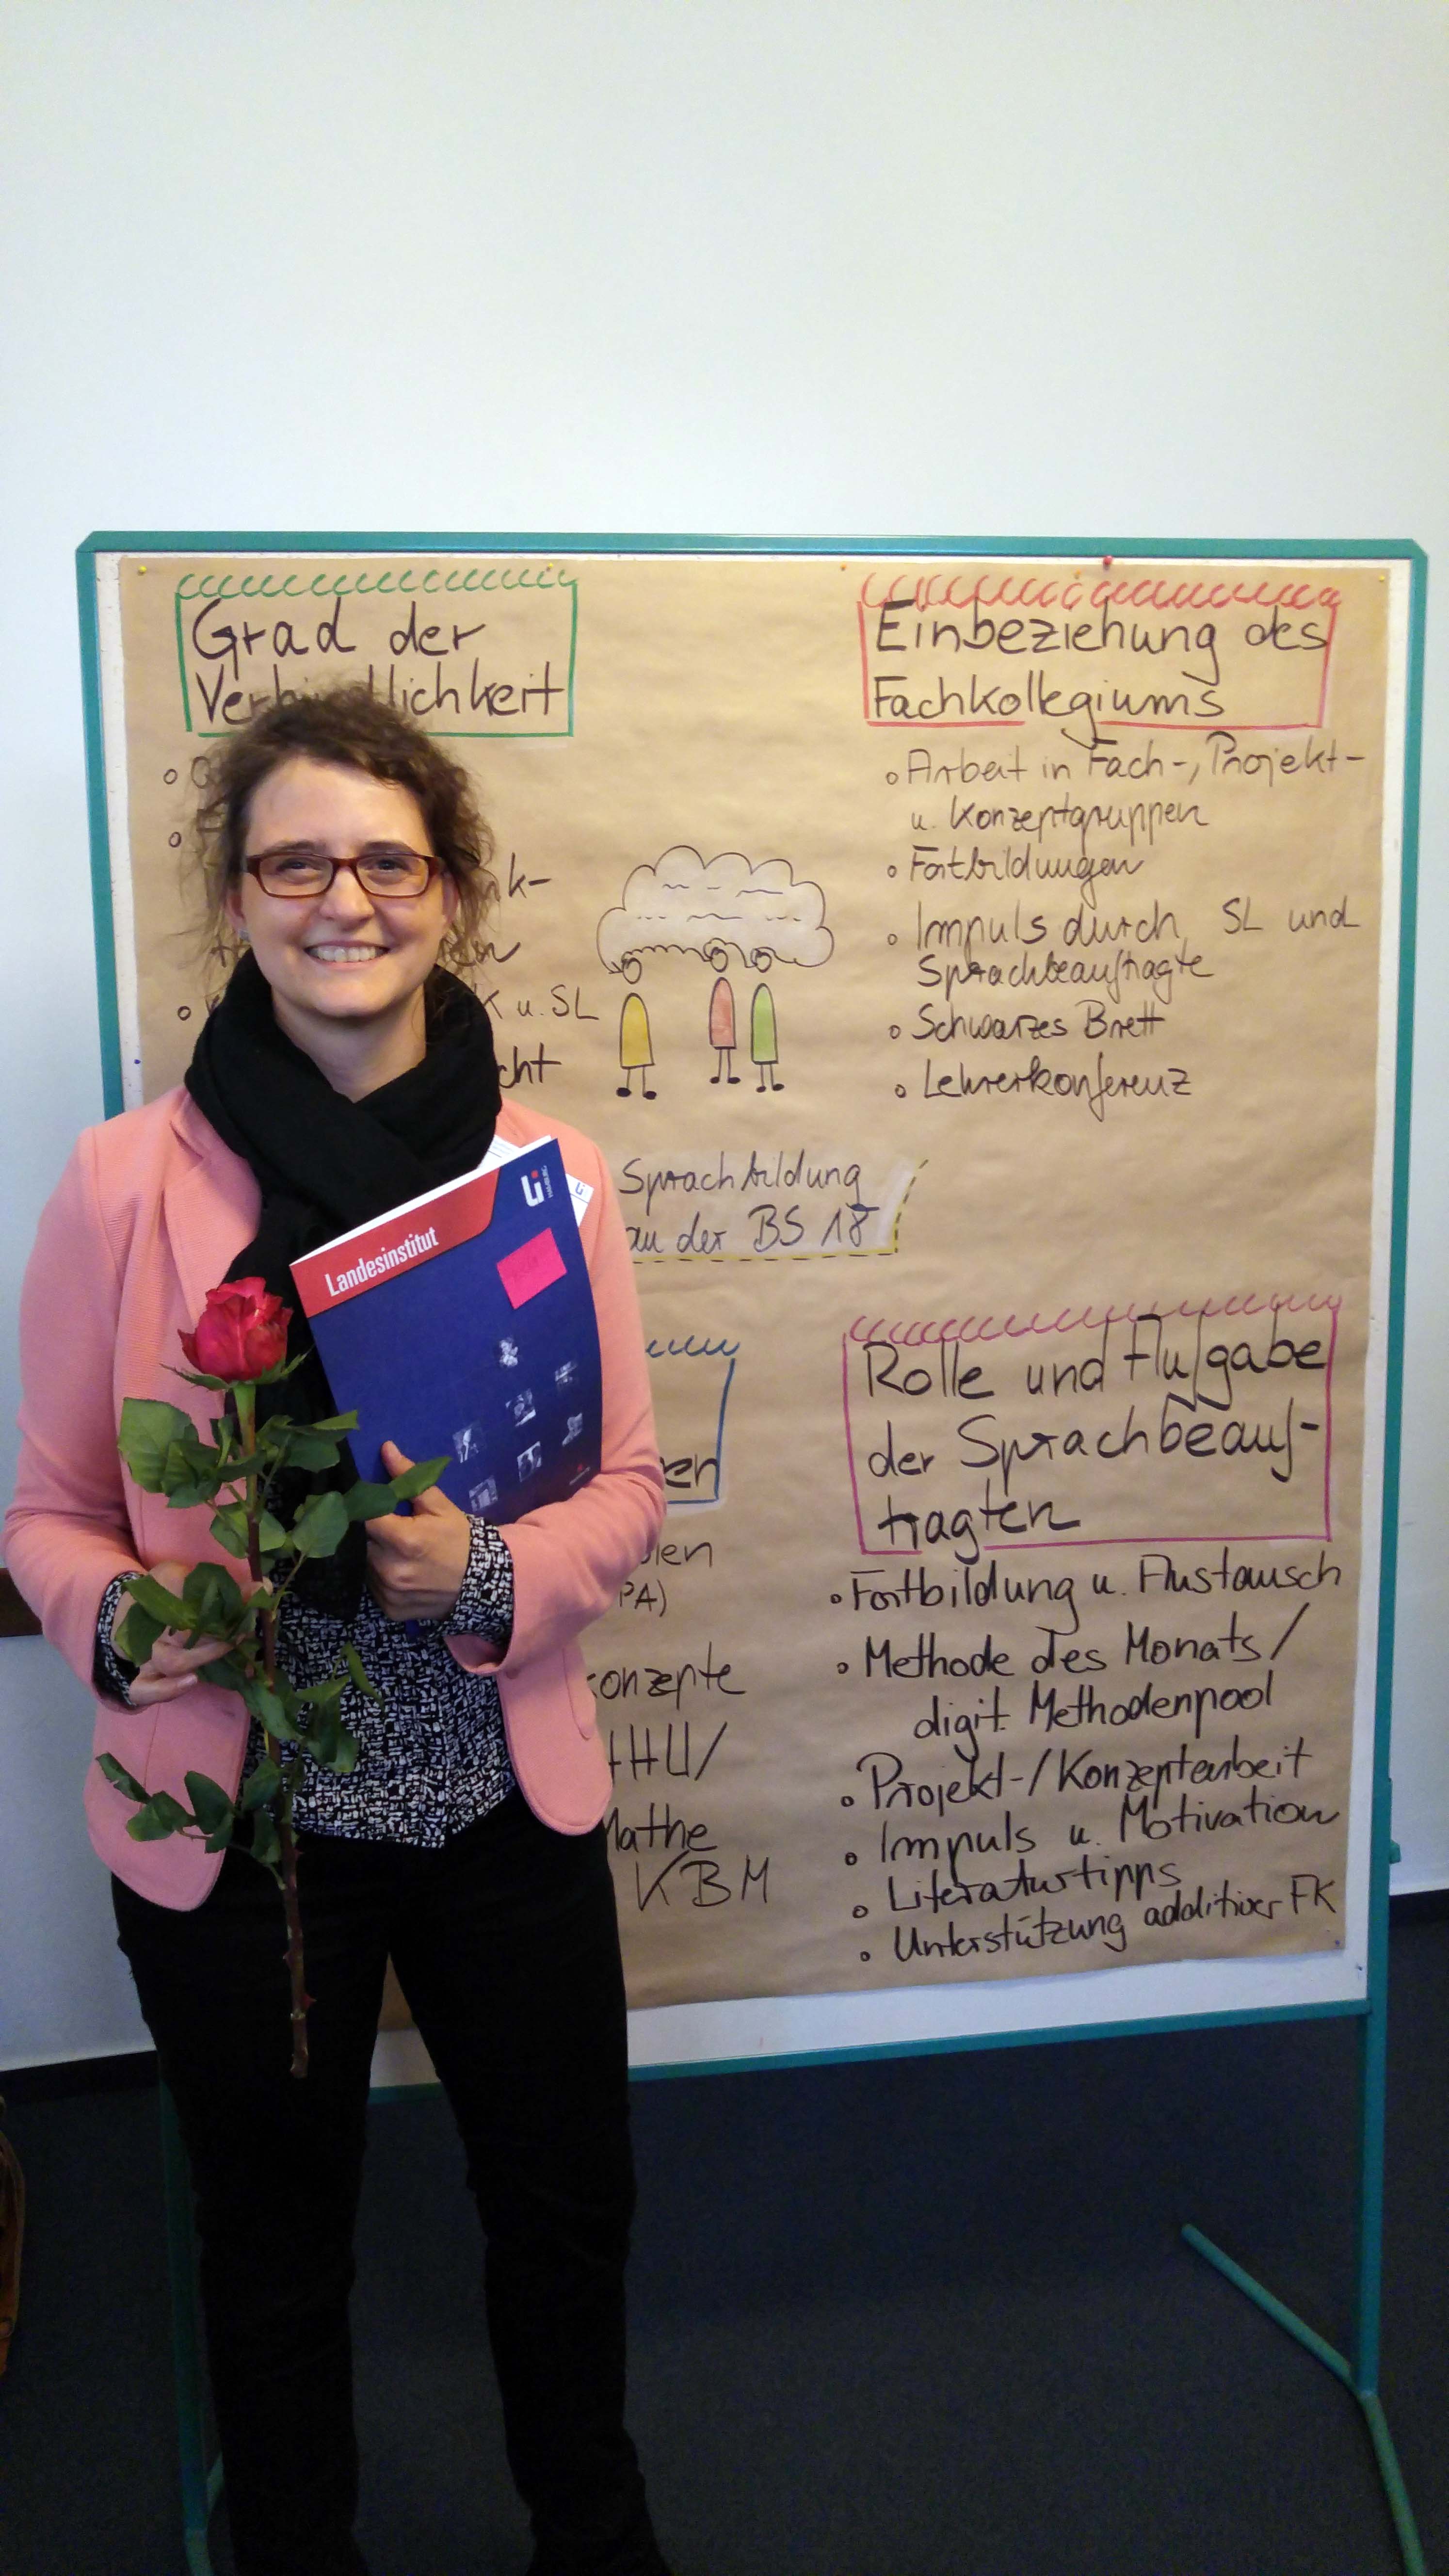 Grad der
Verbindlichkeit
u. SL
Einbeziehung des
Fachkollegiums
Arbeit in Fach-, Projekt-
u. Konzeptgruppen
Fortbildungen
Impuls durch SL und
Sprachbeauftragte
Schwarzes Brett
Lehrerkonferenz
Sprachbildung
an der BS 18
Landesinstitut
Rolle und Aufgabe
der Sprachbeauf-
tragten
Fortbildung u. Austausch
Methode des Monats/
digit. Methodenpool
Projekt-/Konzeptarbeit
Impuls u. Motivation
Literaturtipps
Unterstützung additiver FK
konzepte
Mathe
KBM